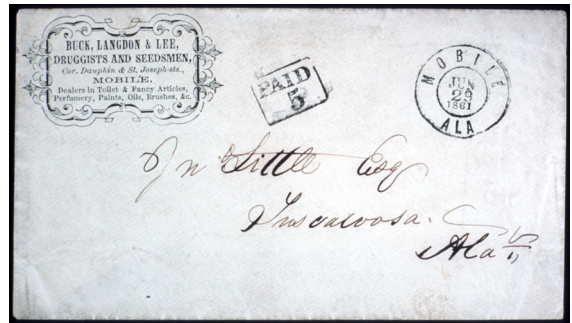 BUCK, LANGDON & LEE,
DRUGGISTS AND SEEDSMEN,
Cor. Dauphin & St. Joseph-sts.,
MOBILE.
Dealers in Toilet & Fancy Articles,
Perfumery, Paints, Oils, Brushes, &c.
PAID
5
MOBILE
JUN
29
1861
ALA
Jn Little Esq
Tuscaloosa.
Ala